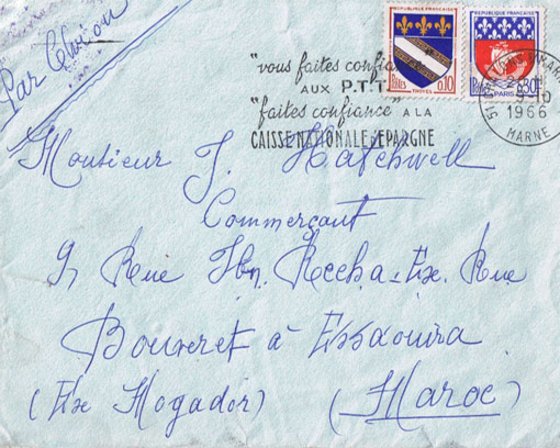 Par Avion
REPUBLIQUE FRANÇAISE
REPUBLIQUE FRANÇAISE
"vous faites confian
AUX P.T.T.
"faites confiance" A LA
CAISSE NATIONALE EPARGNE
Postes 0,10
TROYES
Postes 0,30
PARIS
9-10
1966
MARNE
Monsieur J. Hatchwell
Commerçant
9, Rue Ibn. Reccha - Ex. Rue
Bouvret à Essaouira
(Ex Mogador) (Maroc)